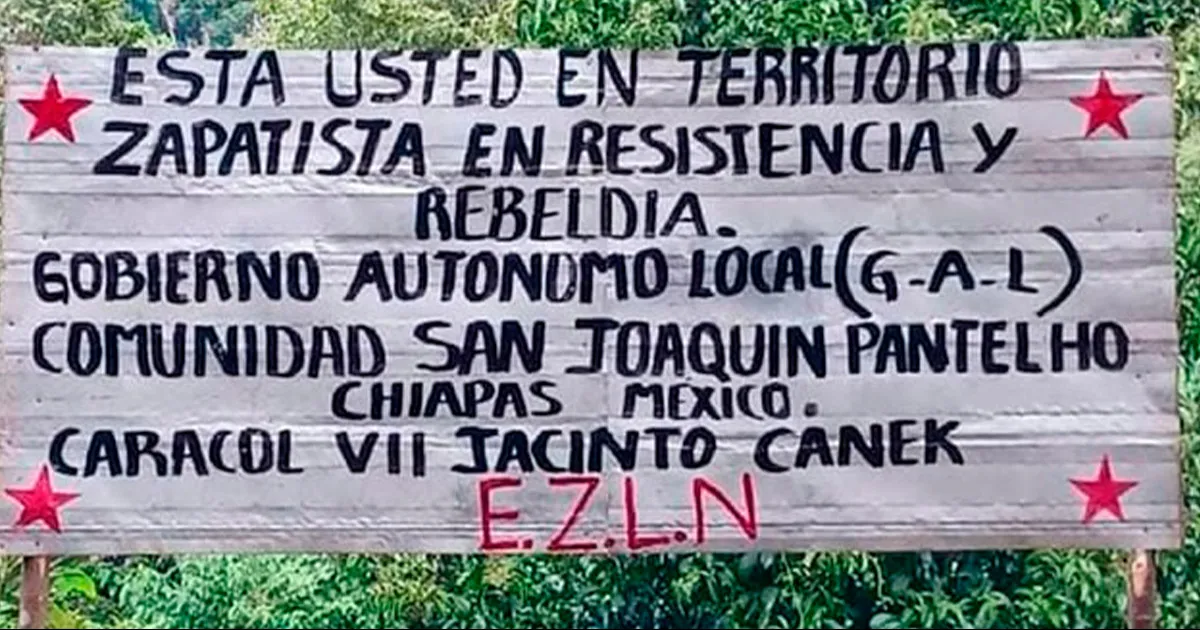 ESTA USTED EN TERRITORIO
ZAPATISTA EN RESISTENCIA Y
REBELDIA.
GOBIERNO AUTONOMO LOCAL (G-A-L)
COMUNIDAD SAN JOAQUIN PANTELHO
CHIAPAS MÉXICO.
CARACOL VII JACINTO CANEK
E.Z.L.N